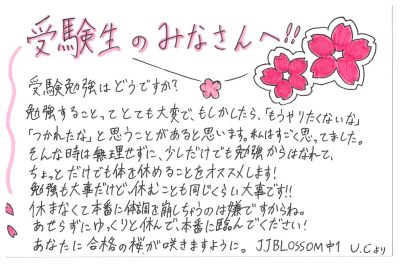 受験生のみなさんへ!!
受験勉強はどうですか?
勉強することってとても大変で、もしかしたら、「もうやりたくないな」
「つかれたな」と思うことがあると思います。私はすごく思ってました。
そんな時は無理せずに、少しだけでも勉強からはなれて、
ちょっとだけでも体を休めることをオススメします!
勉強も大事だけど、休むことも同じくらい大事です!!
休まなくて本番に体調を崩しちゃうのは嫌ですからね。
あせらずにゆっくりと休んで、本番に臨んでください!
あなたに合格の桜が咲きますように。 JJBLOSSOM中1 U.Cより